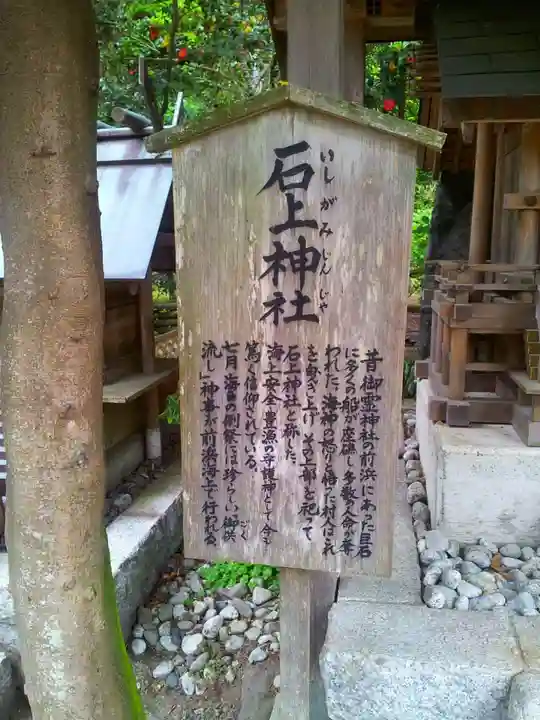 石上神社
いしがみじんじゃ
昔御霊神社の前浜にあった巨石
に多くの船が座礁し多数の人命が奪
われた、海神の怒りと悟った村人はこれ
を曳き上げ、その上部を祀って
石上神社と称した。
海上安全、豊漁の守護神として今も
篤く信仰されている。
七月「海の日」の例祭には珍らしい御供
ごく
流し神事が前浜海上で行われる。